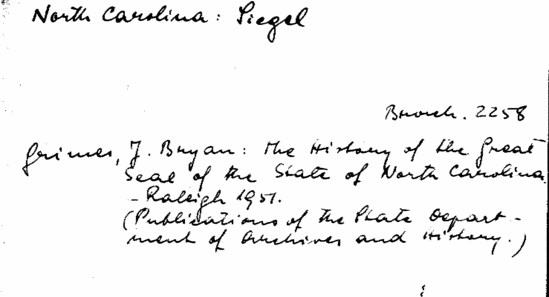 North Carolina: Siegel
Brosch. 2258
Grimes, J. Bryan: The History of the Great
Seal of the State of North Carolina
- Raleigh 1951.
(Publications of the State Depart-
ment of Archives and History.)